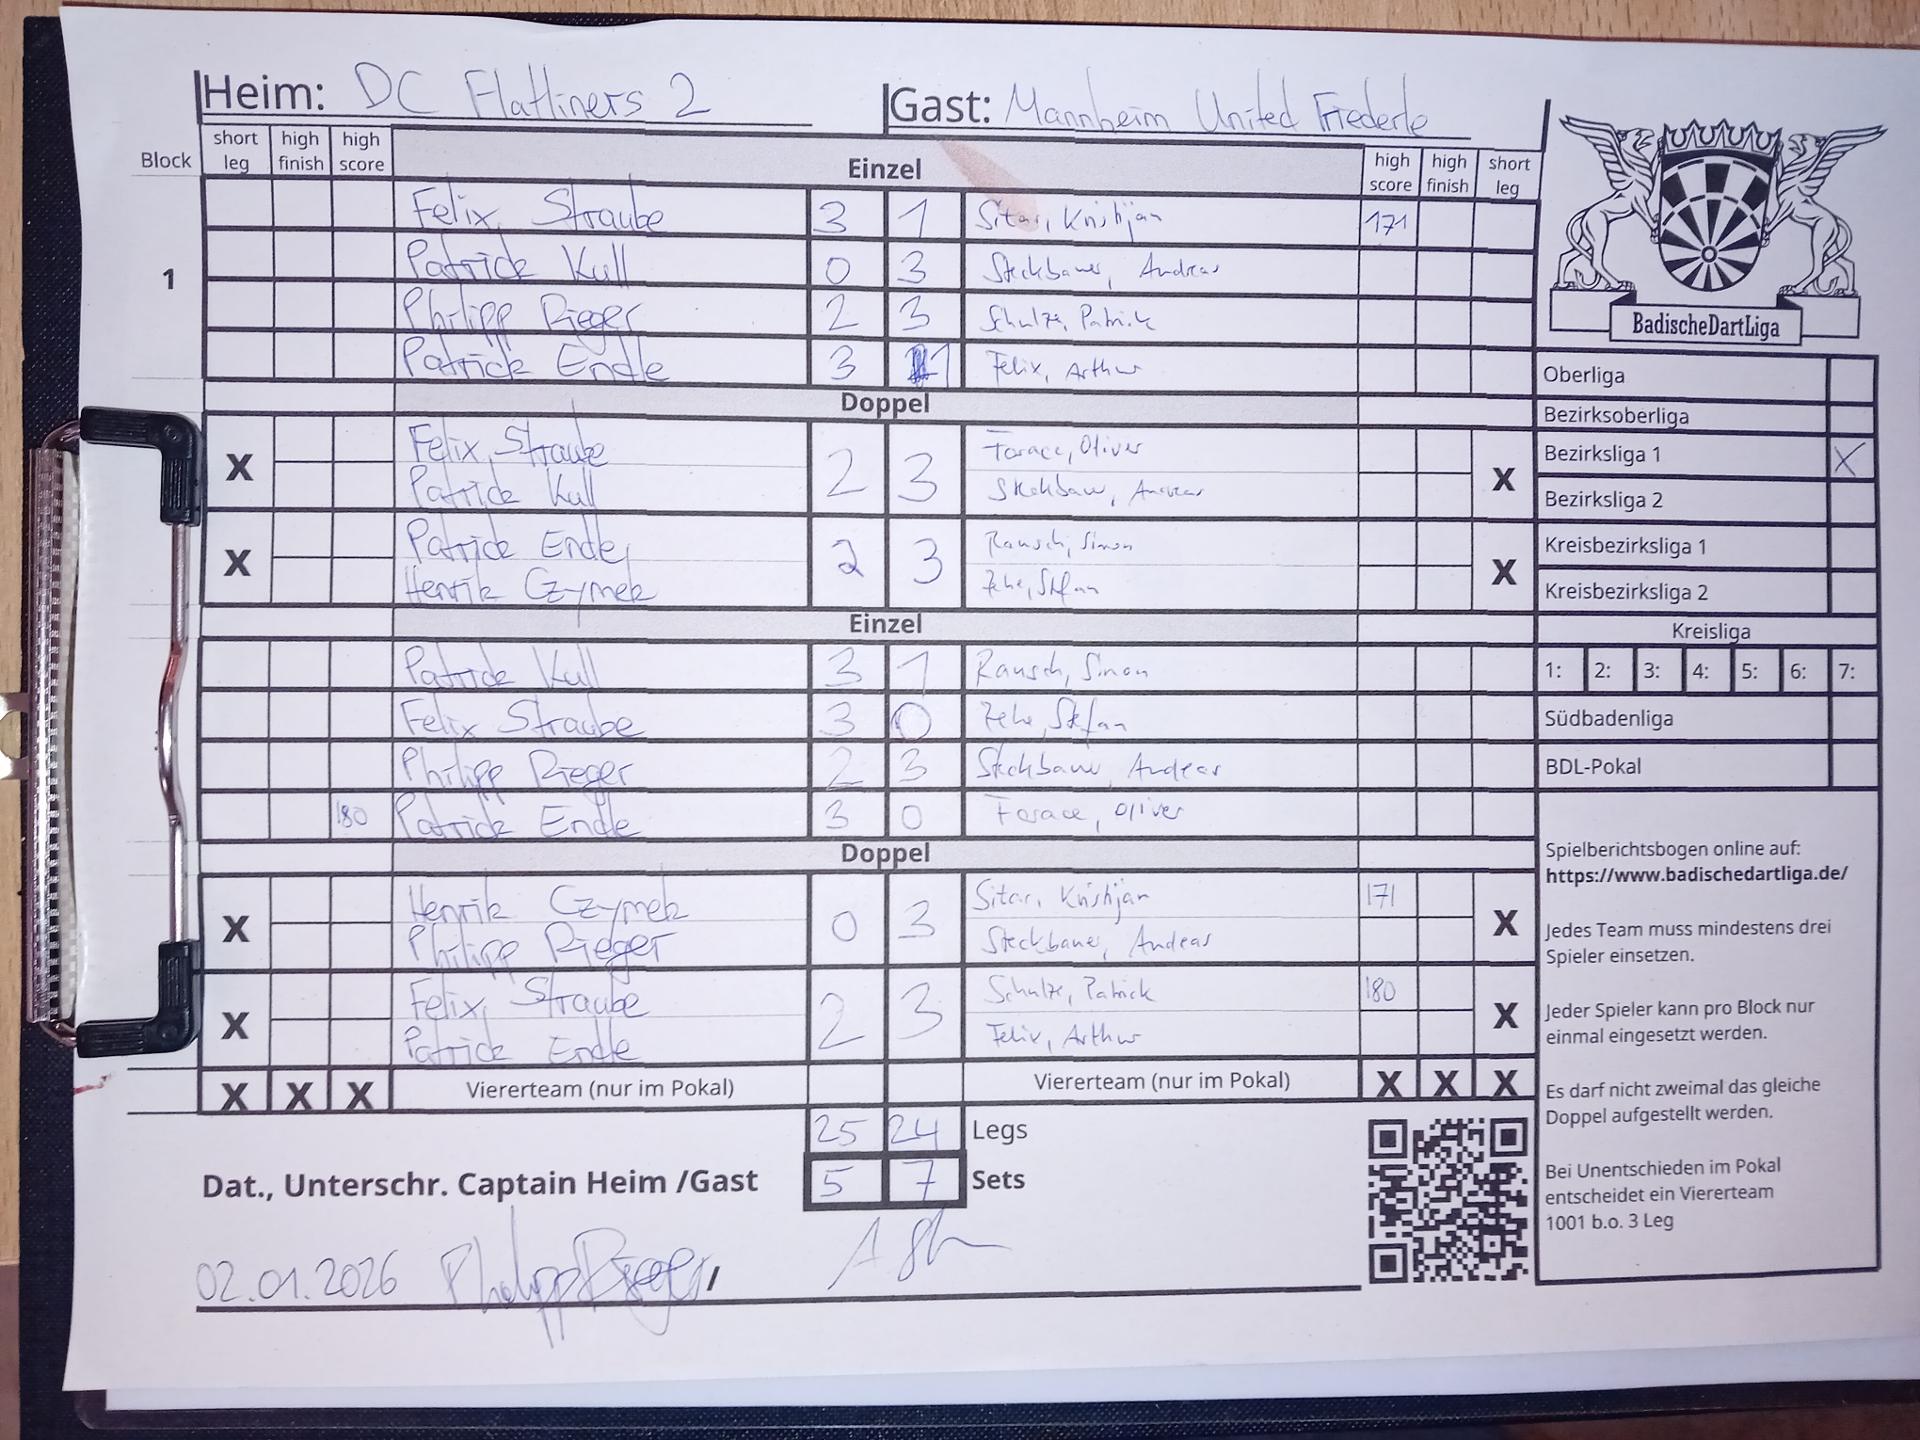 Heim: DC Flatliners 2 Gast: Mannheim United Friederle
Block short leg high finish high score Einzel high score high finish short leg
1
Felix Straube 3 1 Sitar, Kristijan 171
Patrick Kull 0 3 Steckbauer, Andreas
Philipp Rieger 2 3 Schulze, Patrick
Patrick Endle 3 1 Felix, Arthur
Doppel
X Felix Straube 2 3 Farace, Oliver X
Patrick Kull Steckbauer, Andreas
X Patrick Endle, 2 3 Rausch, Simon X
Henrik Czymek Zehe, Stefan
Einzel
Patrick Kull 3 1 Rausch, Simon
Felix Straube 3 0 Zehe, Stefan
Philipp Rieger 2 3 Steckbauer Andreas
180 Patrick Endle 3 0 Farace, Oliver
Doppel
X Henrik Czymek 0 3 Sitar, Kristijan 171 X
Philipp Rieger Steckbauer, Andreas
X Felix, Straube 2 3 Schulze, Patrick 180 X
Patrick Endle Felix, Arthur
X X X Viererteam (nur im Pokal) Viererteam (nur im Pokal) X X X
25 24 Legs
5 7 Sets
Dat., Unterschr. Captain Heim /Gast
02.01.2026 Philipp Rieger /
BadischeDartLiga
Oberliga
Bezirksoberliga
Bezirksliga 1 X
Bezirksliga 2
Kreisbezirksliga 1
Kreisbezirksliga 2
Kreisliga
1: 2: 3: 4: 5: 6: 7:
Südbadenliga
BDL-Pokal
Spielberichtsbogen online auf:
https://www.badischedartliga.de/
Jedes Team muss mindestens drei
Spieler einsetzen.
Jeder Spieler kann pro Block nur
einmal eingesetzt werden.
Es darf nicht zweimal das gleiche
Doppel aufgestellt werden.
Bei Unentschieden im Pokal
entscheidet ein Viererteam
1001 b.o. 3 Leg